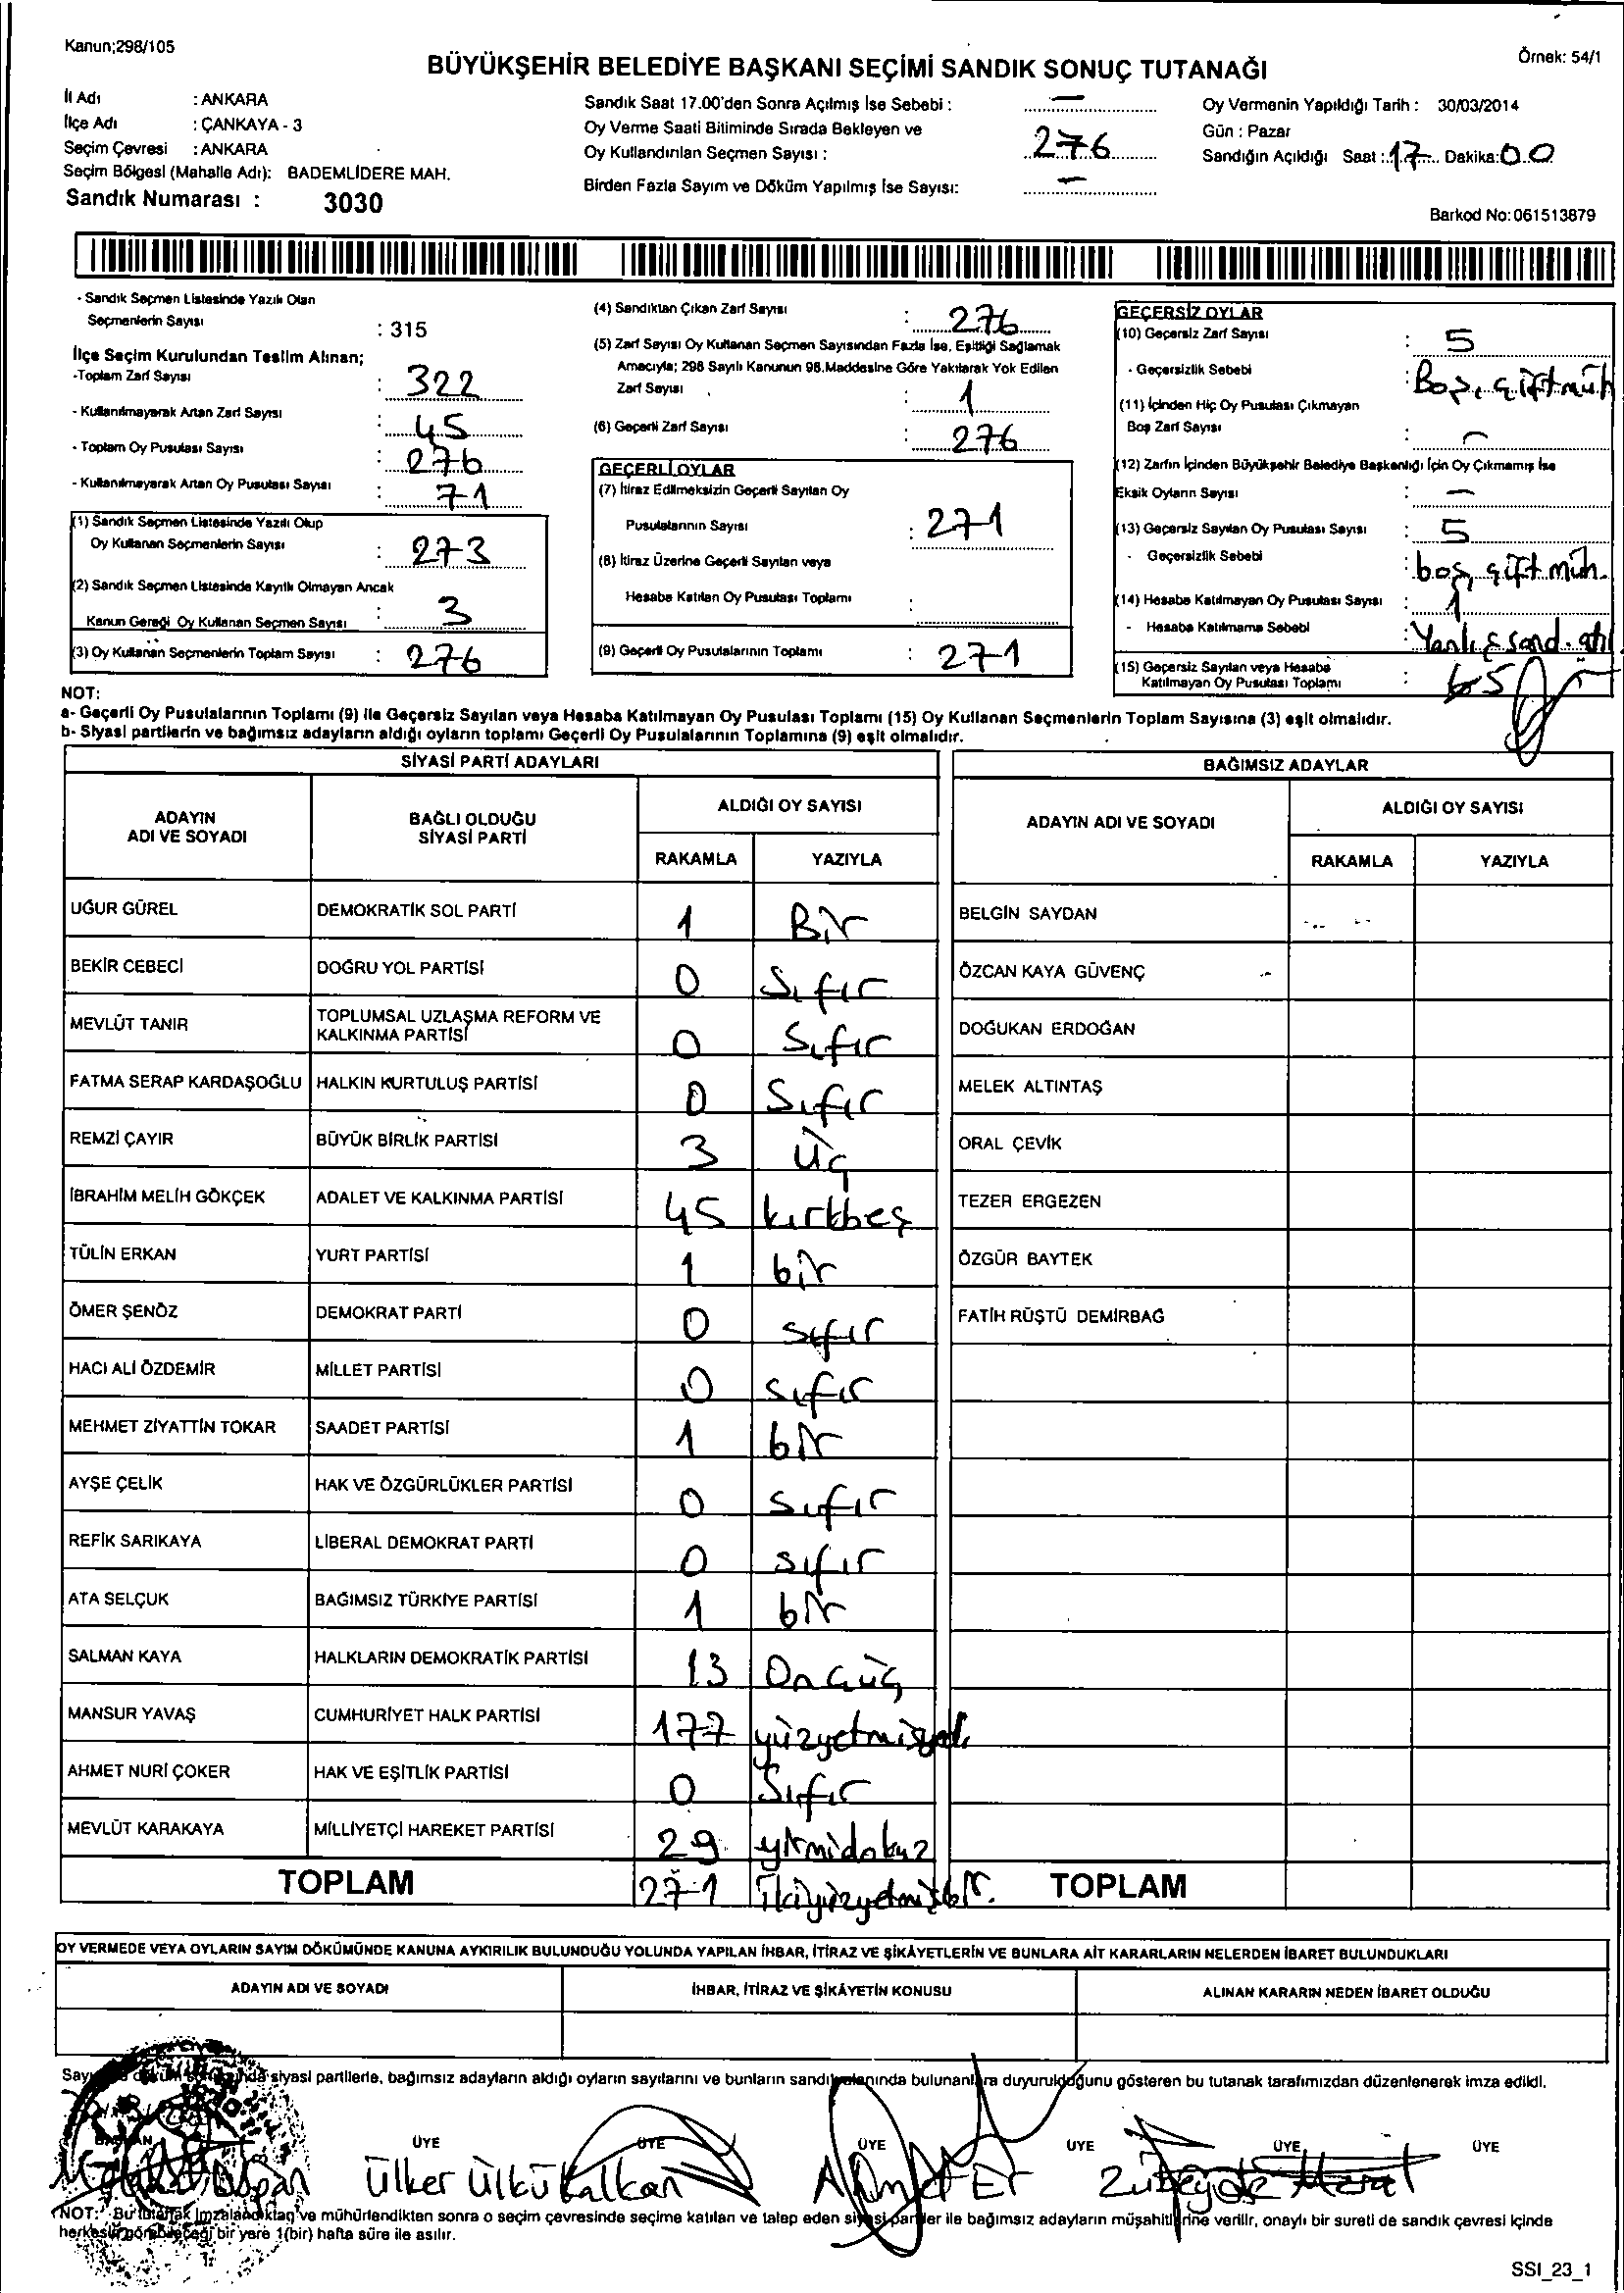 Kanun;298/105
Örnek: 54/1
BÜYÜKŞEHİR BELEDİYE BAŞKANI SEÇİMİ SANDIK SONUÇ TUTANAĞI
İl Adı : ANKARA
İlçe Adı : ÇANKAYA - 3
Seçim Çevresi : ANKARA
Seçim Bölgesi (Mahalle Adı): BADEMLİDERE MAH.
Sandık Numarası : 3030
Sandık Saat 17.00'den Sonra Açılmış İse Sebebi : —
Oy Verme Saati Bitiminde Sırada Bekleyen ve
Oy Kullandırılan Seçmen Sayısı : 276
Birden Fazla Sayım ve Döküm Yapılmış İse Sayısı: —
Oy Vermenin Yapıldığı Tarih : 30/03/2014
Gün : Pazar
Sandığın Açıldığı Saat : 17 Dakika: 00
Barkod No: 061513879
- Sandık Seçmen Listesinde Yazılı Olan
Seçmenlerin Sayısı : 315
İlçe Seçim Kurulundan Teslim Alınan;
-Toplam Zarf Sayısı : 322
- Kullanılmayarak Artan Zarf Sayısı : 45
- Toplam Oy Pusulası Sayısı : 276
- Kullanılmayarak Artan Oy Pusulası Sayısı : 71
(1) Sandık Seçmen Listesinde Yazılı Olup
Oy Kullanan Seçmenlerin Sayısı : 273
(2) Sandık Seçmen Listesinde Kayıtlı Olmayan Ancak
Kanun Gereği Oy Kullanan Seçmen Sayısı : 3
(3) Oy Kullanan Seçmenlerin Toplam Sayısı : 276
(4) Sandıktan Çıkan Zarf Sayısı : 276
(5) Zarf Sayısı Oy Kullanan Seçmen Sayısından Fazla İse, Eşitliği Sağlamak
Amacıyla; 298 Sayılı Kanunun 98.Maddesine Göre Yakılarak Yok Edilen
Zarf Sayısı : 1
(6) Geçerli Zarf Sayısı : 276
GEÇERLİ OYLAR
(7) İtiraz Edilmeksizin Geçerli Sayılan Oy
Pusulalarının Sayısı : 271
(8) İtiraz Üzerine Geçerli Sayılan veya
Hesaba Katılan Oy Pusulası Toplamı :
(9) Geçerli Oy Pusulalarının Toplamı : 271
GEÇERSİZ OYLAR
(10) Geçersiz Zarf Sayısı : 5
- Geçersizlik Sebebi : Boş, çift müh
(11) İçinden Hiç Oy Pusulası Çıkmayan
Boş Zarf Sayısı : —
(12) Zarfın İçinden Büyükşehir Belediye Başkanlığı İçin Oy Çıkmamış İse
Eksik Oyların Sayısı : —
(13) Geçersiz Sayılan Oy Pusulası Sayısı : 5
- Geçersizlik Sebebi : boş, çift müh.
(14) Hesaba Katılmayan Oy Pusulası Sayısı : 1
- Hesaba Katılmama Sebebi : Yanlış sand. atıl
(15) Geçersiz Sayılan veya Hesaba
Katılmayan Oy Pusulası Toplamı : 5
NOT:
a- Geçerli Oy Pusulalarının Toplamı (9) ile Geçersiz Sayılan veya Hesaba Katılmayan Oy Pusulası Toplamı (15) Oy Kullanan Seçmenlerin Toplam Sayısına (3) eşit olmalıdır.
b- Siyasi partilerin ve bağımsız adayların aldığı oyların toplamı Geçerli Oy Pusulalarının Toplamına (9) eşit olmalıdır.
SİYASİ PARTİ ADAYLARI
ADAYIN ADI VE SOYADI BAĞLI OLDUĞU SİYASİ PARTİ ALDIĞI OY SAYISI
RAKAMLA YAZIYLA
UĞUR GÜREL DEMOKRATİK SOL PARTİ 1 Bir
BEKİR CEBECİ DOĞRU YOL PARTİSİ 0 Sıfır
MEVLÜT TANIR TOPLUMSAL UZLAŞMA REFORM VE KALKINMA PARTİSİ 0 Sıfır
FATMA SERAP KARDAŞOĞLU HALKIN KURTULUŞ PARTİSİ 0 Sıfır
REMZİ ÇAYIR BÜYÜK BİRLİK PARTİSİ 3 Üç
İBRAHİM MELİH GÖKÇEK ADALET VE KALKINMA PARTİSİ 45 kırkbeş
TÜLİN ERKAN YURT PARTİSİ 1 bir
ÖMER ŞENÖZ DEMOKRAT PARTİ 0 sıfır
HACI ALİ ÖZDEMİR MİLLET PARTİSİ 0 sıfır
MEHMET ZİYATTİN TOKAR SAADET PARTİSİ 1 bir
AYŞE ÇELİK HAK VE ÖZGÜRLÜKLER PARTİSİ 0 sıfır
REFİK SARIKAYA LİBERAL DEMOKRAT PARTİ 0 sıfır
ATA SELÇUK BAĞIMSIZ TÜRKİYE PARTİSİ 1 bir
SALMAN KAYA HALKLARIN DEMOKRATİK PARTİSİ 13 Onüç
MANSUR YAVAŞ CUMHURİYET HALK PARTİSİ 177 yüzyetmişyedi
AHMET NURİ ÇOKER HAK VE EŞİTLİK PARTİSİ 0 Sıfır
MEVLÜT KARAKAYA MİLLİYETÇİ HAREKET PARTİSİ 29 yirmidokuz
TOPLAM 271 İkiyüzyetmişbir.
BAĞIMSIZ ADAYLAR
ADAYIN ADI VE SOYADI ALDIĞI OY SAYISI
RAKAMLA YAZIYLA
BELGİN SAYDAN
ÖZCAN KAYA GÜVENÇ
DOĞUKAN ERDOĞAN
MELEK ALTINTAŞ
ORAL ÇEVİK
TEZER ERGEZEN
ÖZGÜR BAYTEK
FATİH RÜŞTÜ DEMİRBAĞ
TOPLAM
OY VERMEDE VEYA OYLARIN SAYIM DÖKÜMÜNDE KANUNA AYKIRILIK BULUNDUĞU YOLUNDA YAPILAN İHBAR, İTİRAZ VE ŞİKÂYETLERİN VE BUNLARA AİT KARARLARIN NELERDEN İBARET BULUNDUKLARI
ADAYIN ADI VE SOYADI İHBAR, İTİRAZ VE ŞİKÂYETİN KONUSU ALINAN KARARIN NEDEN İBARET OLDUĞU
siyasi partilerle, bağımsız adayların aldığı oyların sayılarını ve bunların sandık alanında bulunanlara duyurulduğunu gösteren bu tutanak tarafımızdan düzenlenerek imza edildi.
BAŞKAN ÜYE ÜYE ÜYE ÜYE ÜYE ÜYE
Doğan Ülker Ülkü Kalkan Ahmet Er Zübeyde Meral
NOT: Bu tutanak imzalandıktan ve mühürlendikten sonra o seçim çevresinde seçime katılan ve talep eden siyasi partiler ile bağımsız adayların müşahitlerine verilir, onaylı bir sureti de sandık çevresi içinde
herkesin görebileceği bir yere 1(bir) hafta süre ile asılır.
SSI_23_1